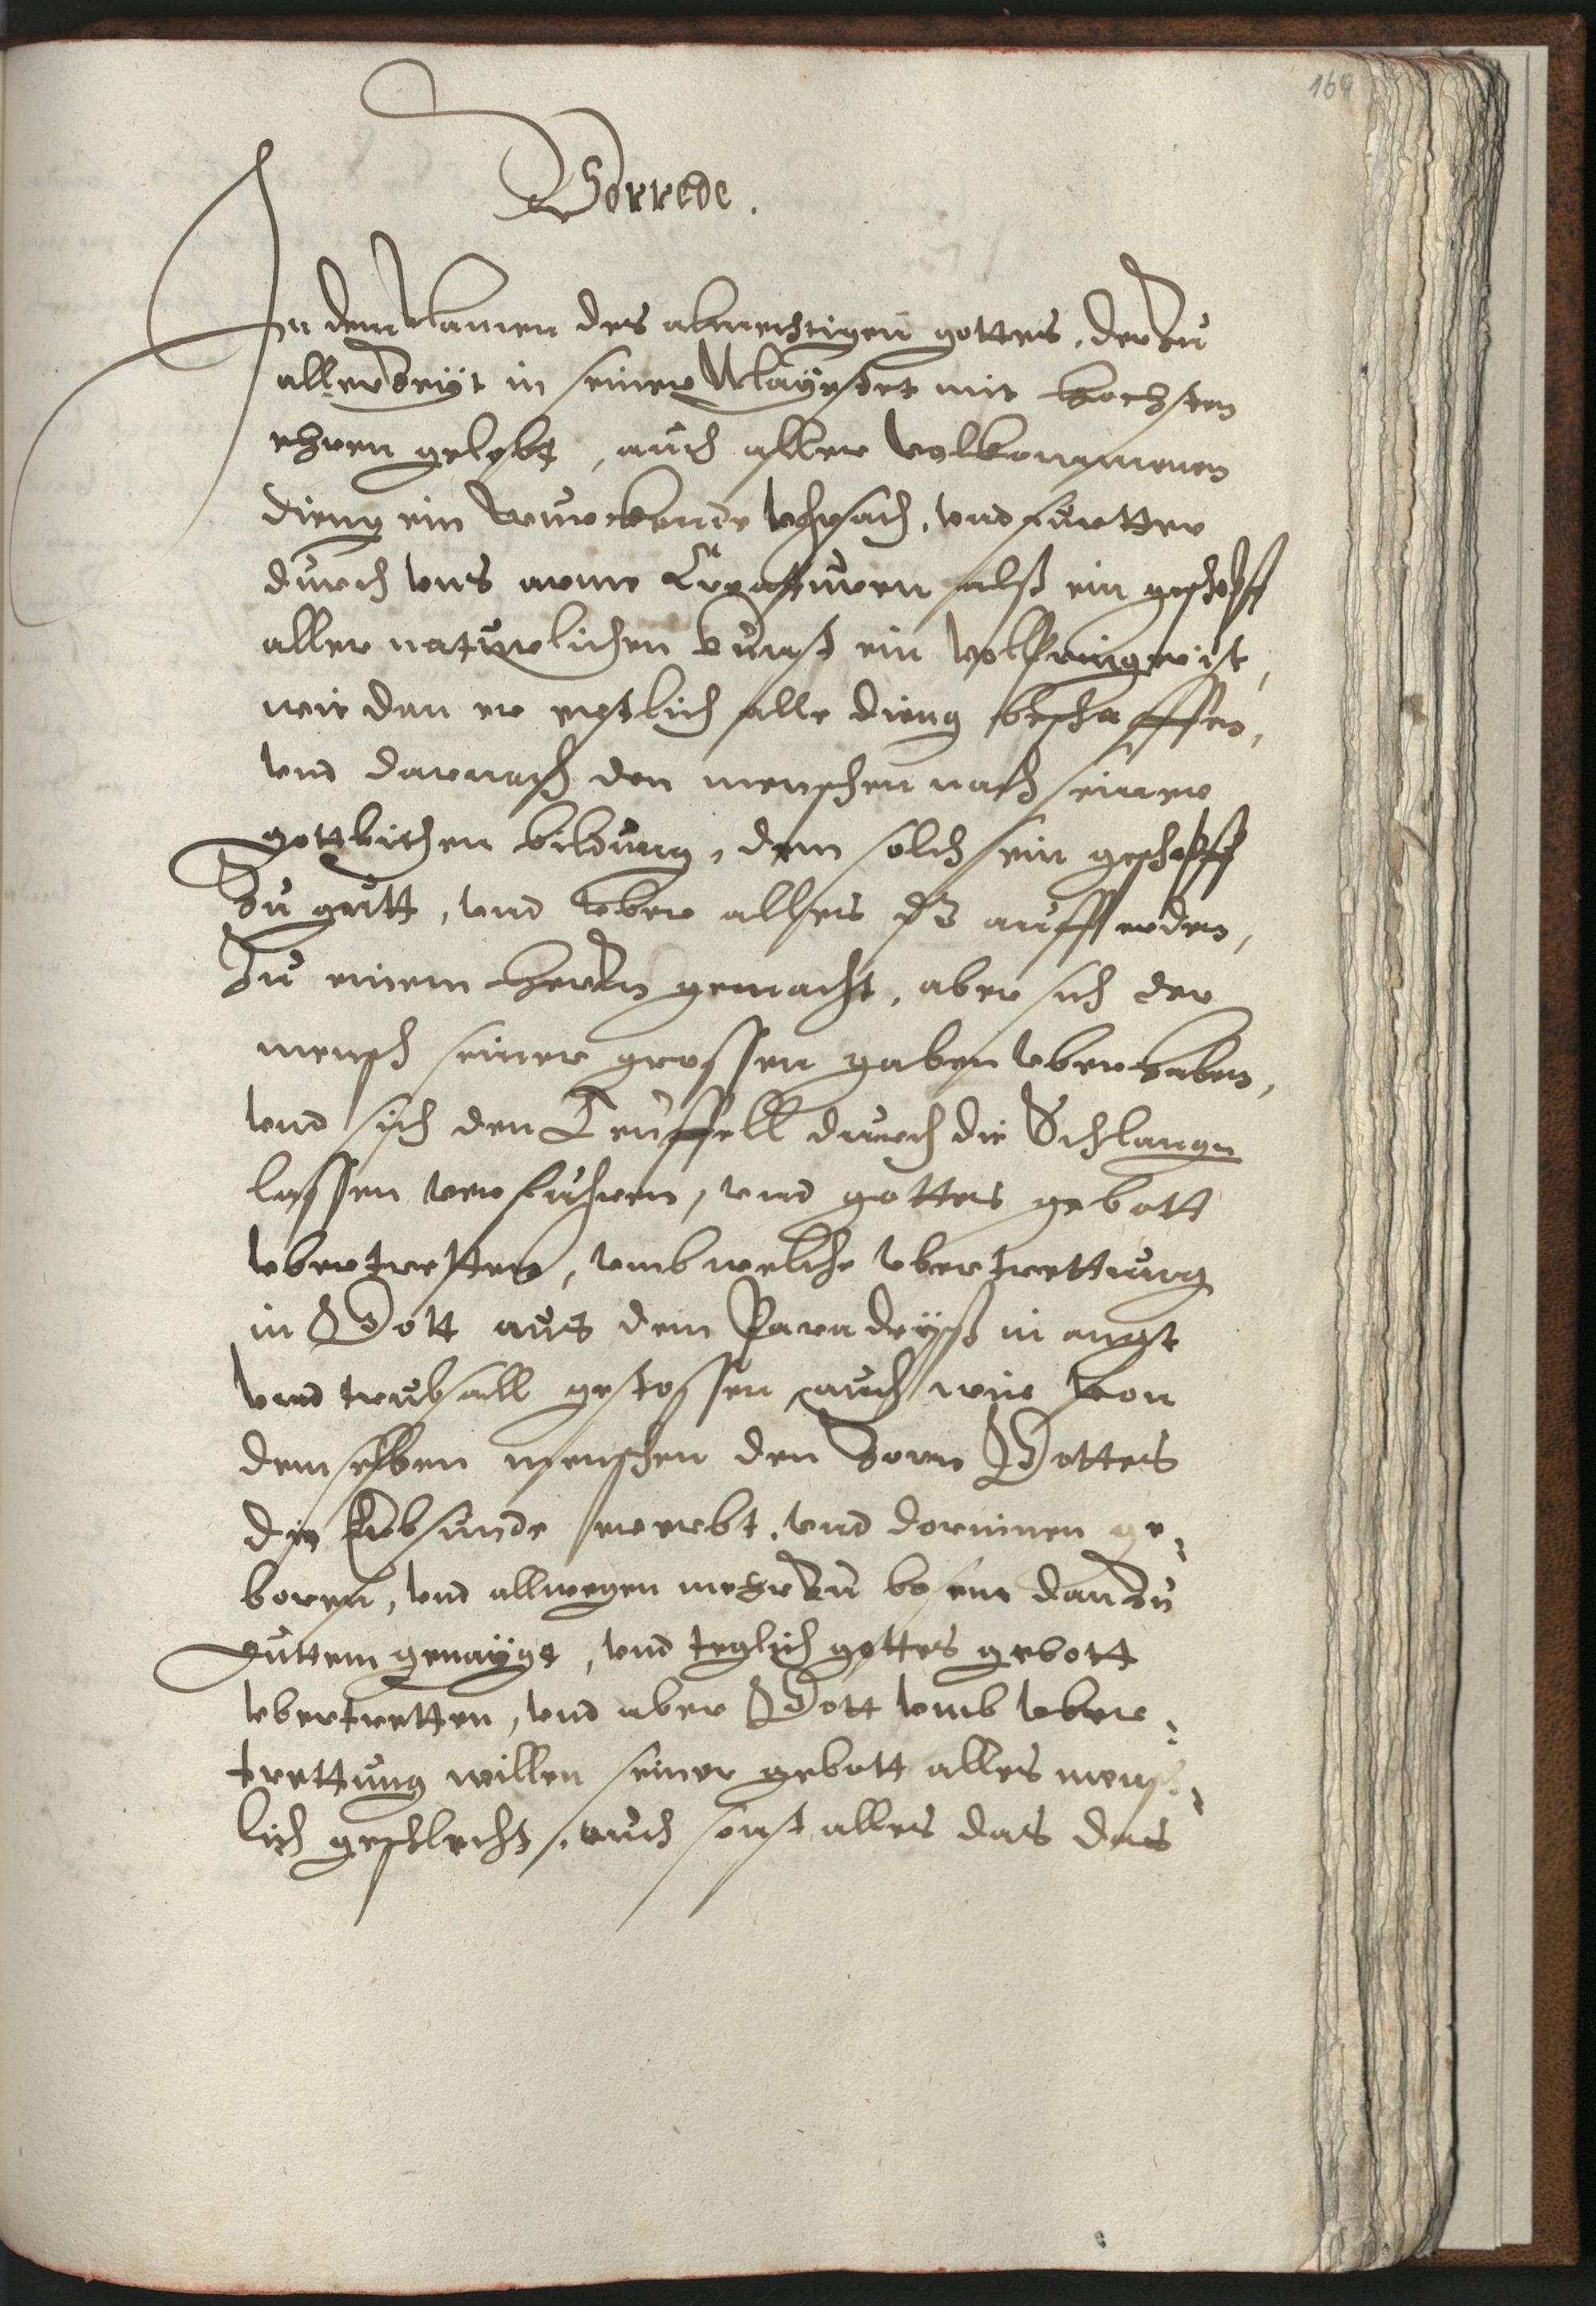 169
Vorrede.
In dem Namen des almechtigen gottes, der zu
aller zeiyt in seiner Mayestet mit hochsten
ehren gelebt, auch aller volkommenen
dieng ein wurckende vhrsach, vnd furtter
durch vns arme Creatturen alß ein geschopff
aller naturlichen kunst ein volbringer ist,
wie dan er erstlich alle dieng beschaffen,
vnd darnach den menschen nach seiner
gottlichen bildung, dem solch sein geschopff
zu gutt, vnd vber alles dz auff erden,
zu einem herrn gemacht, aber sich der
mensch seiner grossen gaben vberhaben,
vnd sich den Teuffell durch die Schlangn
lassen verfuhren, vnd gottes gebott
vbertretten, vmb welche vbertrettung
in Gott aus dem Paradeyß in angst
vnd trubsall gestossen, auch wir von
demselben menschen den zorn Gottes
die Erbsunde ererbt, vnd dorninen ge¬
boren, vnd allwegen mehr zu bosem dan zu
guttem genaygt, vnd teglich gottes gebott
vbertretten, vnd aber Gott vmb vber¬
trettung willen seiner gebott alles mensch¬
lich geschlecht, auch sonst alles das das